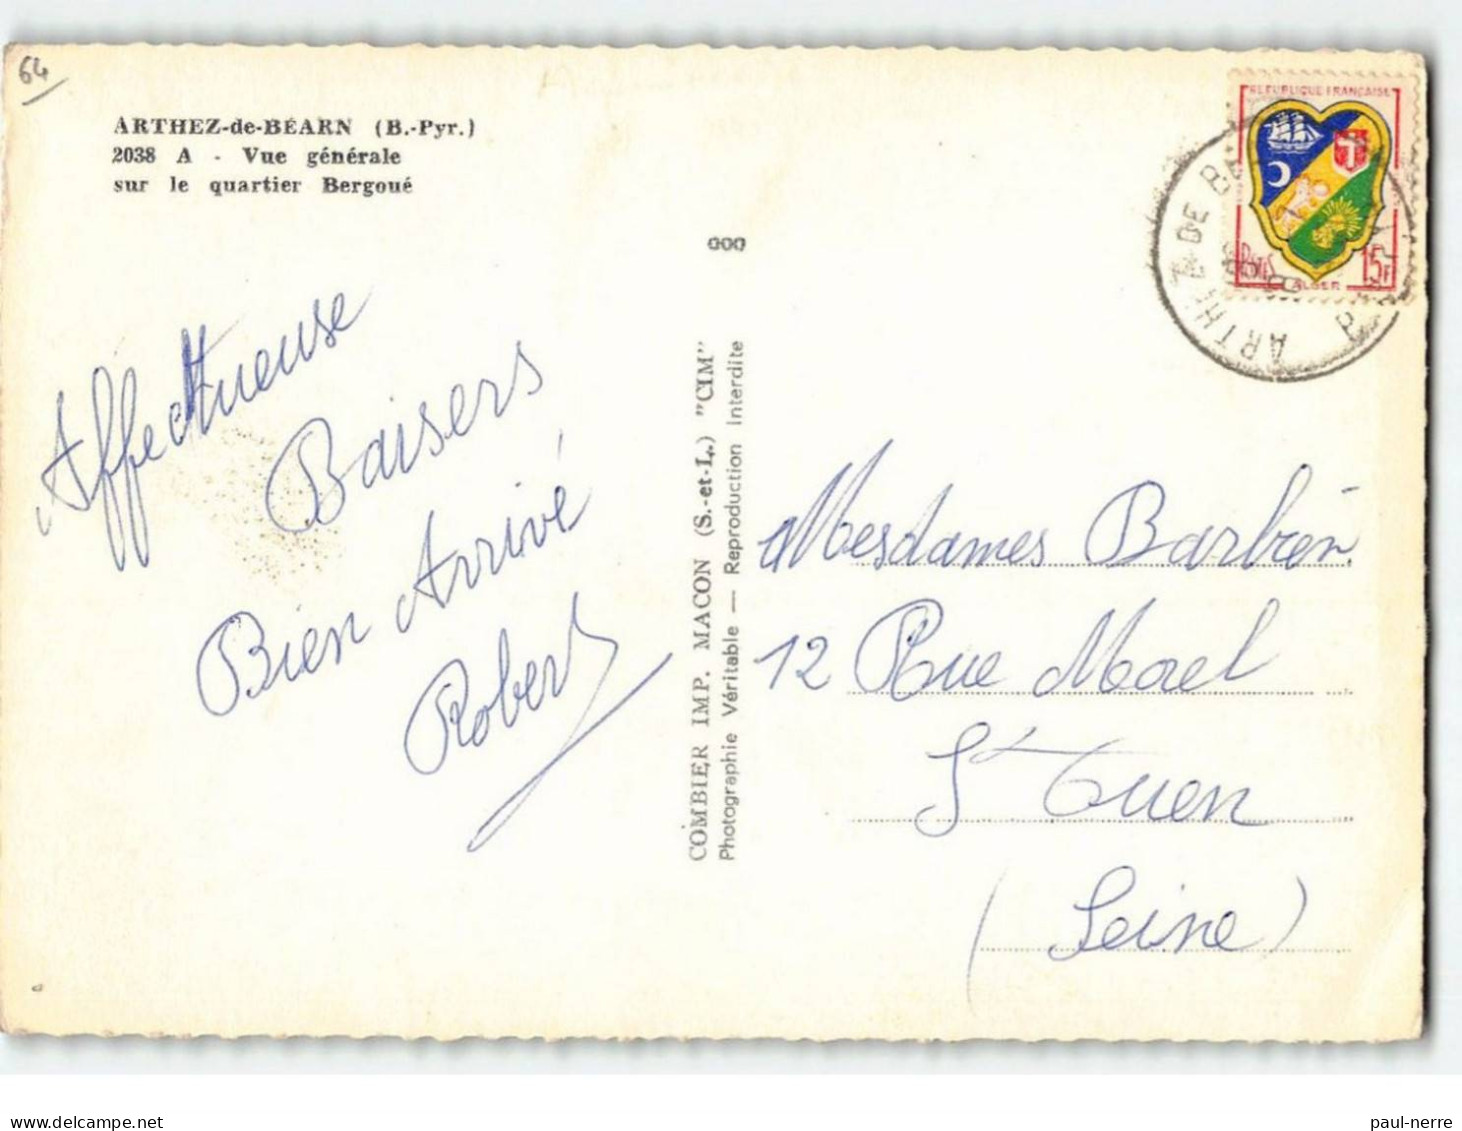 64
ARTHEZ-de-BÉARN (B.-Pyr.)
2038 A - Vue générale
sur le quartier Bergoué
Affectueuse
Baisers
Bien Arrivé
Robert
COMBIER IMP. MACON (S.-et-L.) "CIM"
Photographie Véritable — Reproduction Interdite
REPUBLIQUE FRANÇAISE
POSTES
15F
ALGER
ARTHEZ DE BE
Mesdames Barbién
12 Rue Morel
St Ouen
(Seine)
paul-nerre